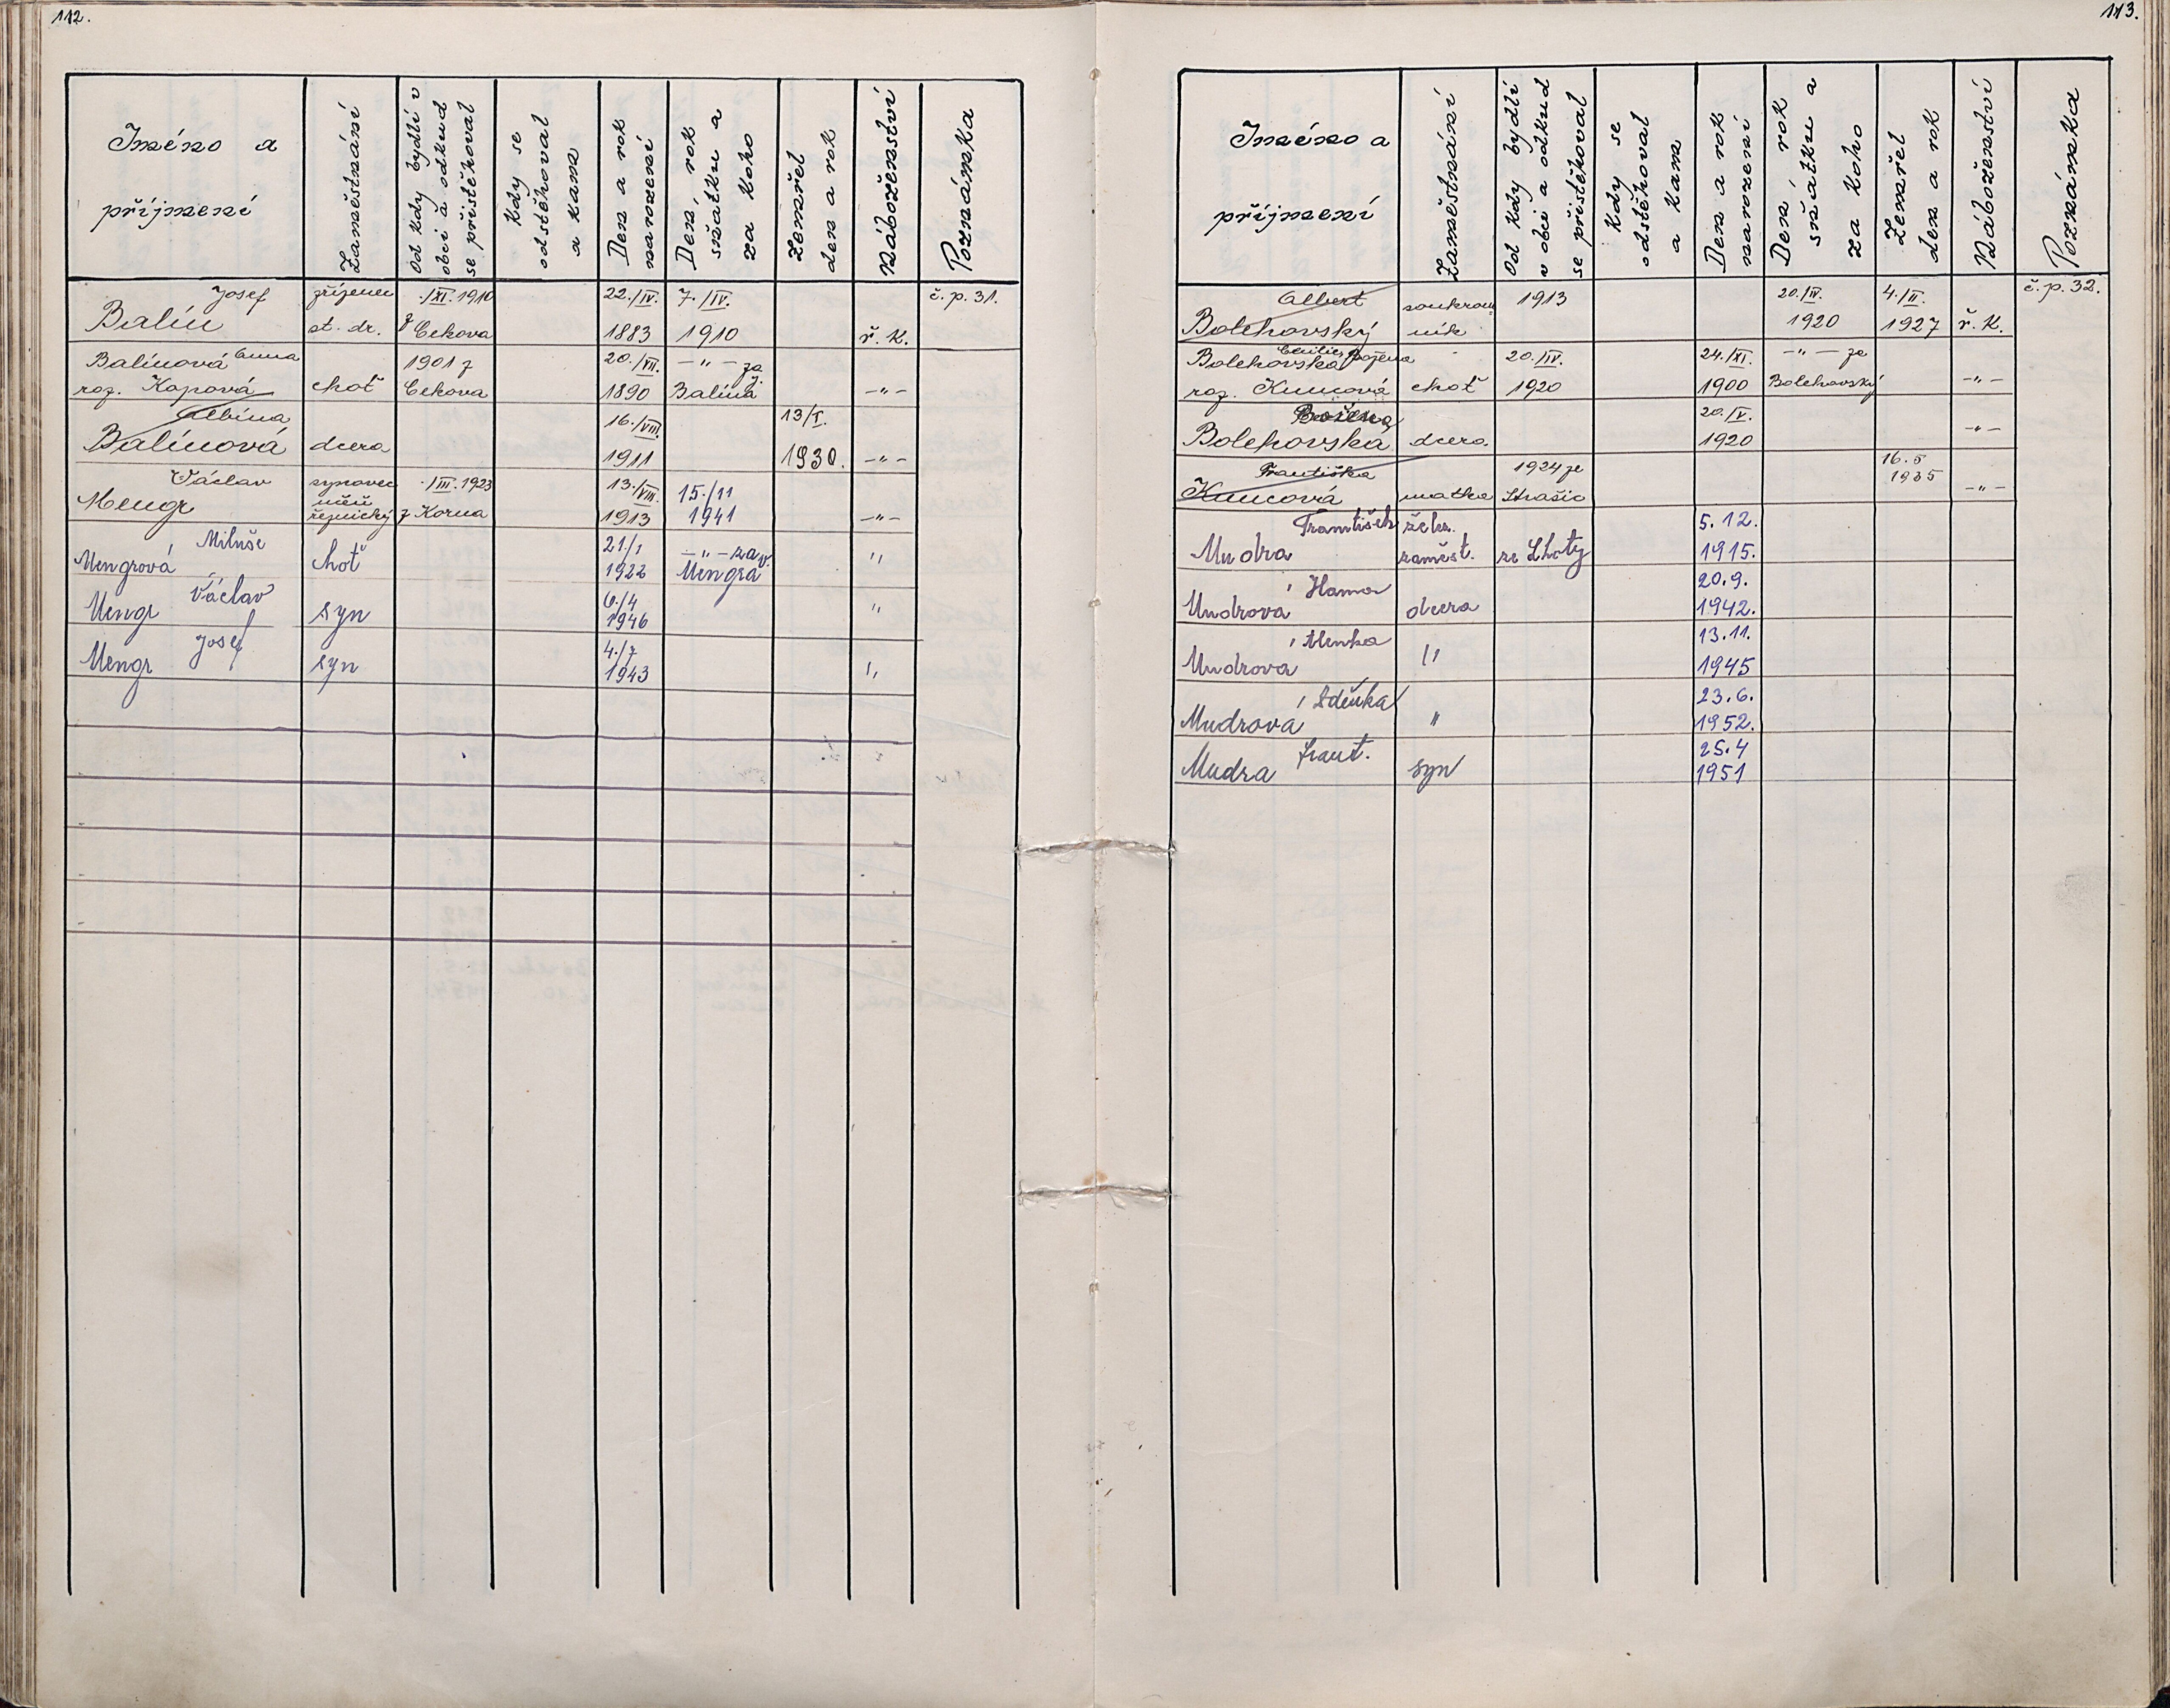 112.
Jméno a příjmení
Zaměstnání
Od kdy bydlí v obci a odkud se přistěhoval
Kdy se odstěhoval a kam
Den a rok narození
Den, rok sňatku a za koho
Zemřel den a rok
Náboženství
Poznámka
Josef zřízenec ·/XI. 1910 22./IV. 7./IV. č. p. 31.
Balín st. dr. z Cekova 1883 1910 ř. K.
Balínová Anna 1901 z 20./XII. —"— za
roz. Kapová choť Cekova 1890 Balína J. —"—
Albína 16./VIII. 13/I.
Balínová dcera 1911 1930. —"—
Václav synovec ·/III. 1923 13./VIII. 15./11
Mengr učeň řeznický z Korna 1913 1941 —"—
Miluše 21/1 —"— za V.
Mengrová choť 1922 Mengra "
Václav 6./4
Mengr syn 1946 "
Josef 4./7
Mengr syn 1943 "
113.
Jméno a příjmení
Zaměstnání
Od kdy bydlí v obci a odkud se přistěhoval
Kdy se odstěhoval a kam
Den a rok narození
Den, rok sňatku a za koho
Zemřel den a rok
Náboženství
Poznámka
Albert soukrom 1913 20./IV. 4./II. č. p. 32.
Bolchovský ník 1920 1927 ř. K.
Bolehovská Božena 20./IV. 24./XI. —"— za
roz. Kuncová choť 1920 1900 Bolehovský —"—
Božena 20./V.
Bolehovská dcera 1920 —"—
Františka 1924 ze 16. 5
Kuncová matka Strašic 1935 —"—
František žel. 5. 12.
Mudra zaměst. ze Lhoty 1915.
Hana 20. 9.
Mudrová dcera 1942.
Alenka 13. 11.
Mudrová " 1945
Zdeňka 23. 6.
Mudrová " 1952.
Frant. 25. 4
Mudra syn 1951